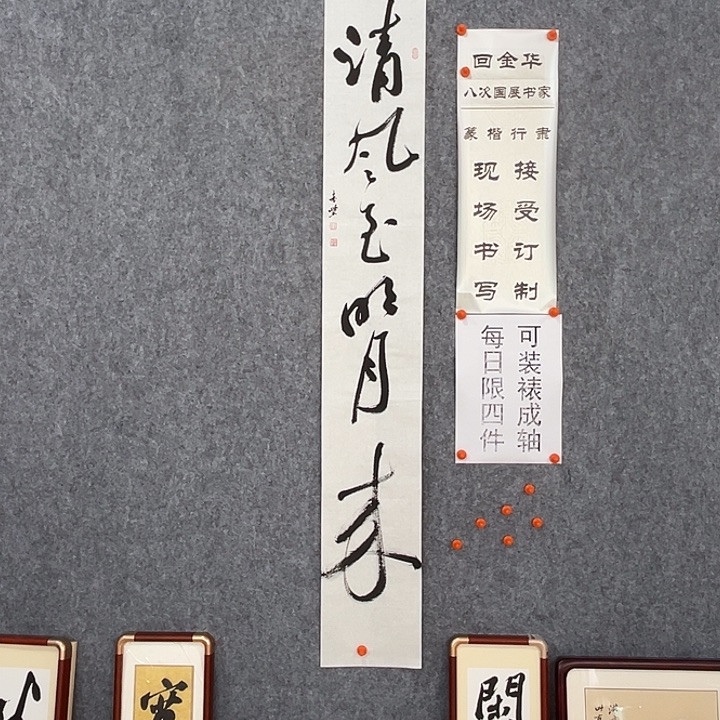 清风至明月来
回金华
八次国展书家
篆楷行隶
接受订制
现场书写
可装裱成轴
每日限四件
閑